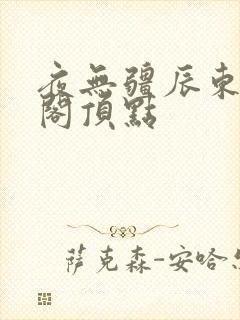 夜無疆辰東
閣頂點
萨克森-安哈